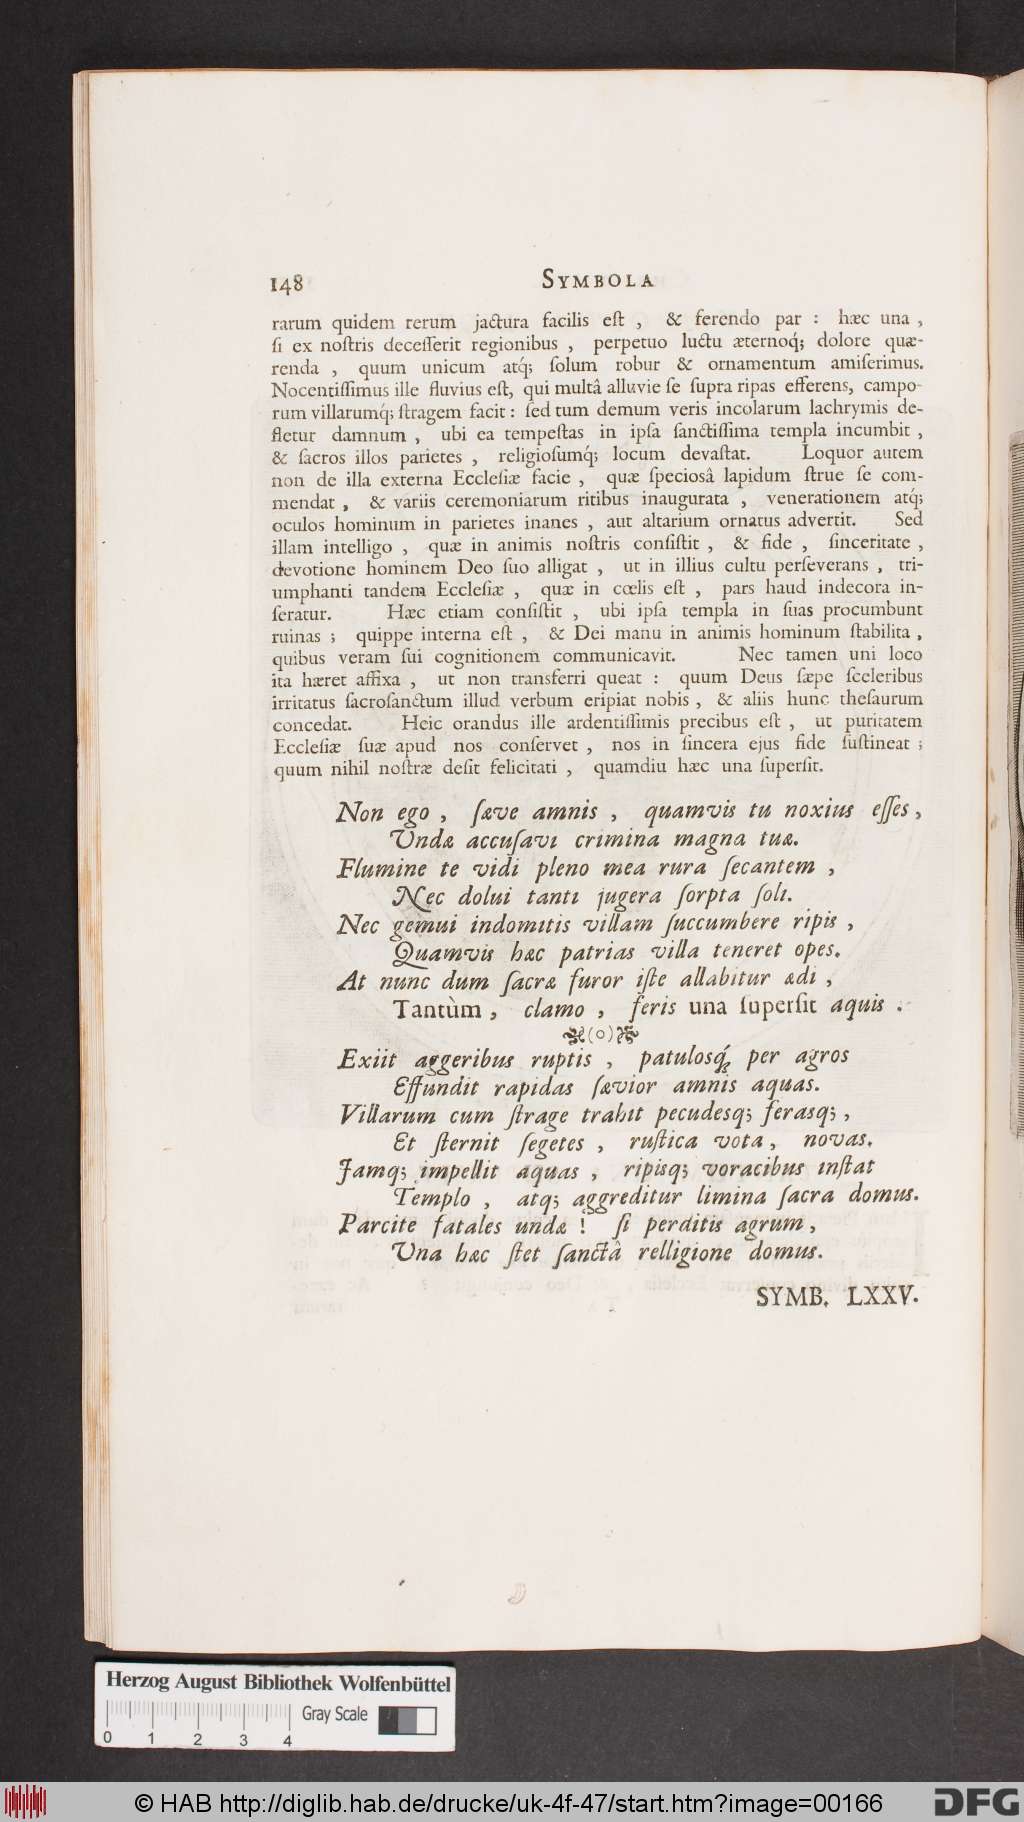 148 SYMBOLA
rarum quidem rerum jactura facilis eſt , & ferendo par : hæc una ,
ſi ex noſtris deceſſerit regionibus , perpetuo luctu æternoq́; dolore quæ-
renda , quum unicum atq́; ſolum robur & ornamentum amiſerimus.
Nocentiſſimus ille fluvius eſt, qui multâ alluvie ſe ſupra ripas efferens, campo-
rum villarumq́; ſtragem facit : ſed tum demum veris incolarum lachrymis de-
fletur damnum , ubi ea tempeſtas in ipſa ſanctiſſima templa incumbit ,
& ſacros illos parietes , religioſumq́; locum devaſtat. Loquor autem
non de illa externa Eccleſiæ facie , quæ ſpeciosâ lapidum ſtrue ſe com-
mendat , & variis ceremoniarum ritibus inaugurata , venerationem atq́;
oculos hominum in parietes inanes , aut altarium ornatus advertit. Sed
illam intelligo , quæ in animis noſtris conſiſtit , & fide , ſinceritate ,
devotione hominem Deo ſuo alligat , ut in illius cultu perſeverans , tri-
umphanti tandem Eccleſiæ , quæ in cœlis eſt , pars haud indecora in-
ſeratur. Hæc etiam conſiſtit , ubi ipſa templa in ſuas procumbunt
ruinas ; quippe interna eſt , & Dei manu in animis hominum ſtabilita ,
quibus veram ſui cognitionem communicavit. Nec tamen uni loco
ita hæret affixa , ut non transferri queat : quum Deus ſæpe ſceleribus
irritatus ſacroſanctum illud verbum eripiat nobis , & aliis hunc theſaurum
concedat. Heic orandus ille ardentiſſimis precibus eſt , ut puritatem
Eccleſiæ ſuæ apud nos conſervet , nos in ſincera ejus fide ſuſtineat ;
quum nihil noſtræ deſit felicitati , quamdiu hæc una ſuperſit.
Non ego , ſæve amnis , quamvis tu noxius eſſes ,
Undæ accuſavi crimina magna tuæ.
Flumine te vidi pleno mea rura ſecantem ,
Nec dolui tanti jugera ſorpta ſoli.
Nec gemui indomitis villam ſuccumbere ripis ,
Quamvis hæc patrias villa teneret opes.
At nunc dum ſacræ furor iſte allabitur ædi ,
Tantùm , clamo , feris una ſuperſit aquis .
(o)
Exiit aggeribus ruptis , patuloſq́; per agros
Effundit rapidas ſævior amnis aquas.
Villarum cum ſtrage trahit pecudesq; ferasq; ,
Et ſternit ſegetes , ruſtica vota , novas.
Jamq; impellit aquas , ripisq; voracibus inſtat
Templo , atq; aggreditur limina ſacra domus.
Parcite fatales undæ ! ſi perditis agrum ,
Una hæc ſtet ſanctâ relligione domus.
SYMB. LXXV.
Herzog August Bibliothek Wolfenbüttel
Gray Scale
0 1 2 3 4
© HAB http://diglib.hab.de/drucke/uk-4f-47/start.htm?image=00166
DFG